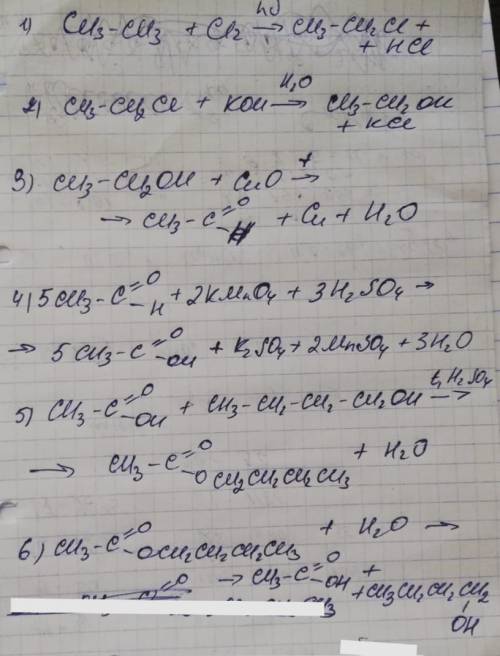 hν
1) CH3-CH3 + Cl2 → CH3-CH2Cl +
+ HCl
H2O
2) CH3-CH2Cl + KOH → CH3-CH2OH
+ KCl
3) CH3-CH2OH + CuO →t
→ CH3-C=O -H + Cu + H2O
4) 5CH3-C=O -H + 2KMnO4 + 3H2SO4 →
→ 5CH3-C=O -OH + K2SO4 + 2MnSO4 + 3H2O
5) CH3-C=O -OH + CH3-CH2-CH2-CH2OH →t, H2SO4
→ CH3-C=O -OCH2CH2CH2CH3 + H2O
6) CH3-C=O -OCH2CH2CH2CH3 + H2O →
→ CH3-C=O -OH +
+CH3CH2CH2CH2
OH